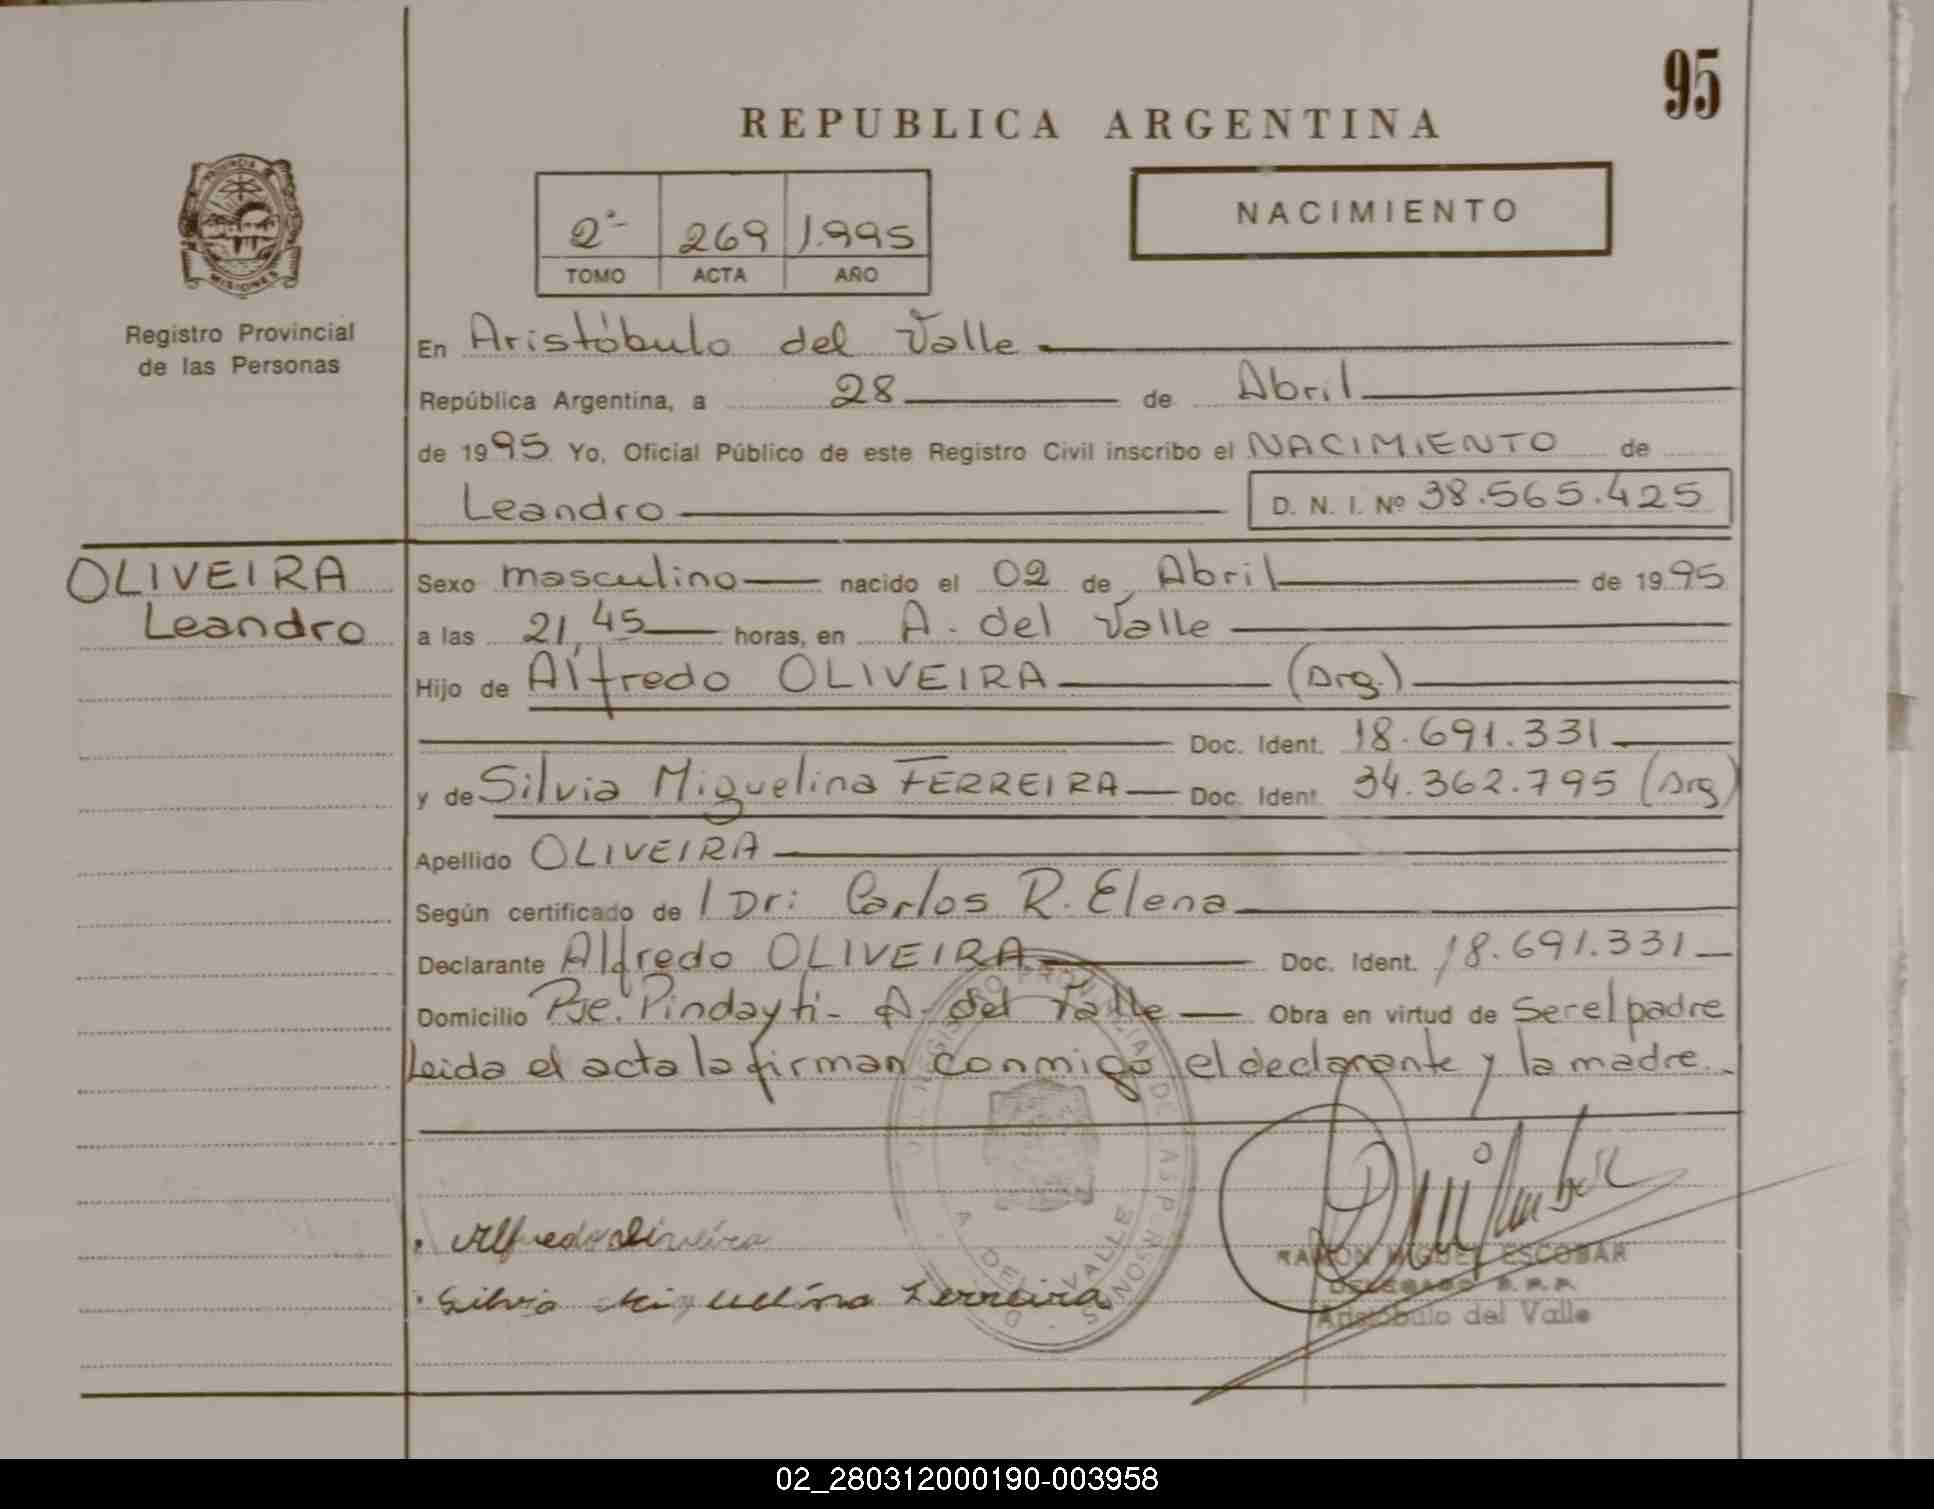 95
REPUBLICA ARGENTINA
PROVINCIA
MISIONES
Registro Provincial
de las Personas
2º 269 1.995
TOMO ACTA AÑO
NACIMIENTO
En Aristóbulo del Valle
República Argentina, a 28 de Abril
de 1995 Yo, Oficial Público de este Registro Civil inscribo el NACIMIENTO de
Leandro D. N. I. Nº 38.565.425
OLIVEIRA
Leandro
Sexo masculino nacido el 02 de Abril de 1995
a las 21,45 horas, en A. del Valle
Hijo de Alfredo OLIVEIRA (Arg.)
Doc. Ident. 18.691.331
y de Silvia Miguelina FERREIRA Doc. Ident. 34.362.795 (Arg)
Apellido OLIVEIRA
Según certificado de l Dr: Carlos R. Elena
Declarante Alfredo OLIVEIRA Doc. Ident. 18.691.331
Domicilio Pje. Pindayti - A. del Valle Obra en virtud de ser el padre
Leida el acta la firman conmigo el declarante y la madre.
REGISTRO PROVINCIAL DE LAS PERSONAS
A. DEL VALLE
Alfredo Oliveira
Silvia Miguelina Ferreira
RAMON MIGUEL ESCOBAR
DELEGADO R.P.P.
Aristóbulo del Valle
02_280312000190-003958